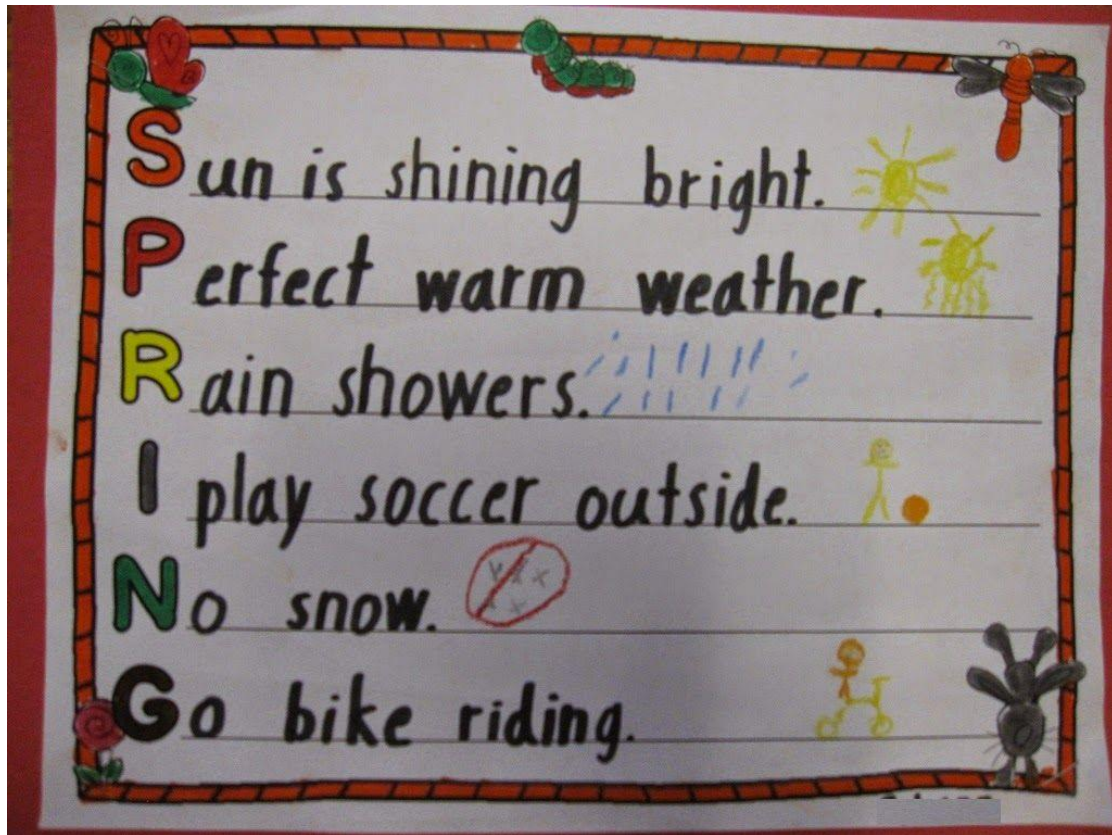 Sun is shining bright.
Perfect warm weather.
Rain showers.
I play soccer outside.
No snow.
Go bike riding.